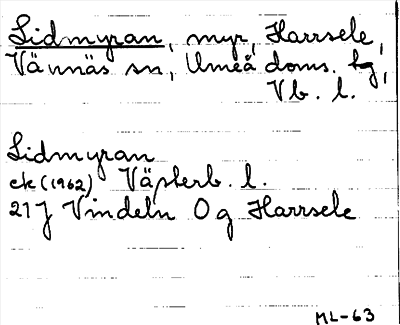 Lidmyran, myr, Harrsele,
Vännäs sn, Umeå doms. tg,
Vb. l.
Lidmyran
ek (1962) Västerb. l.
21J Vindeln Og Harrsele
ML-63